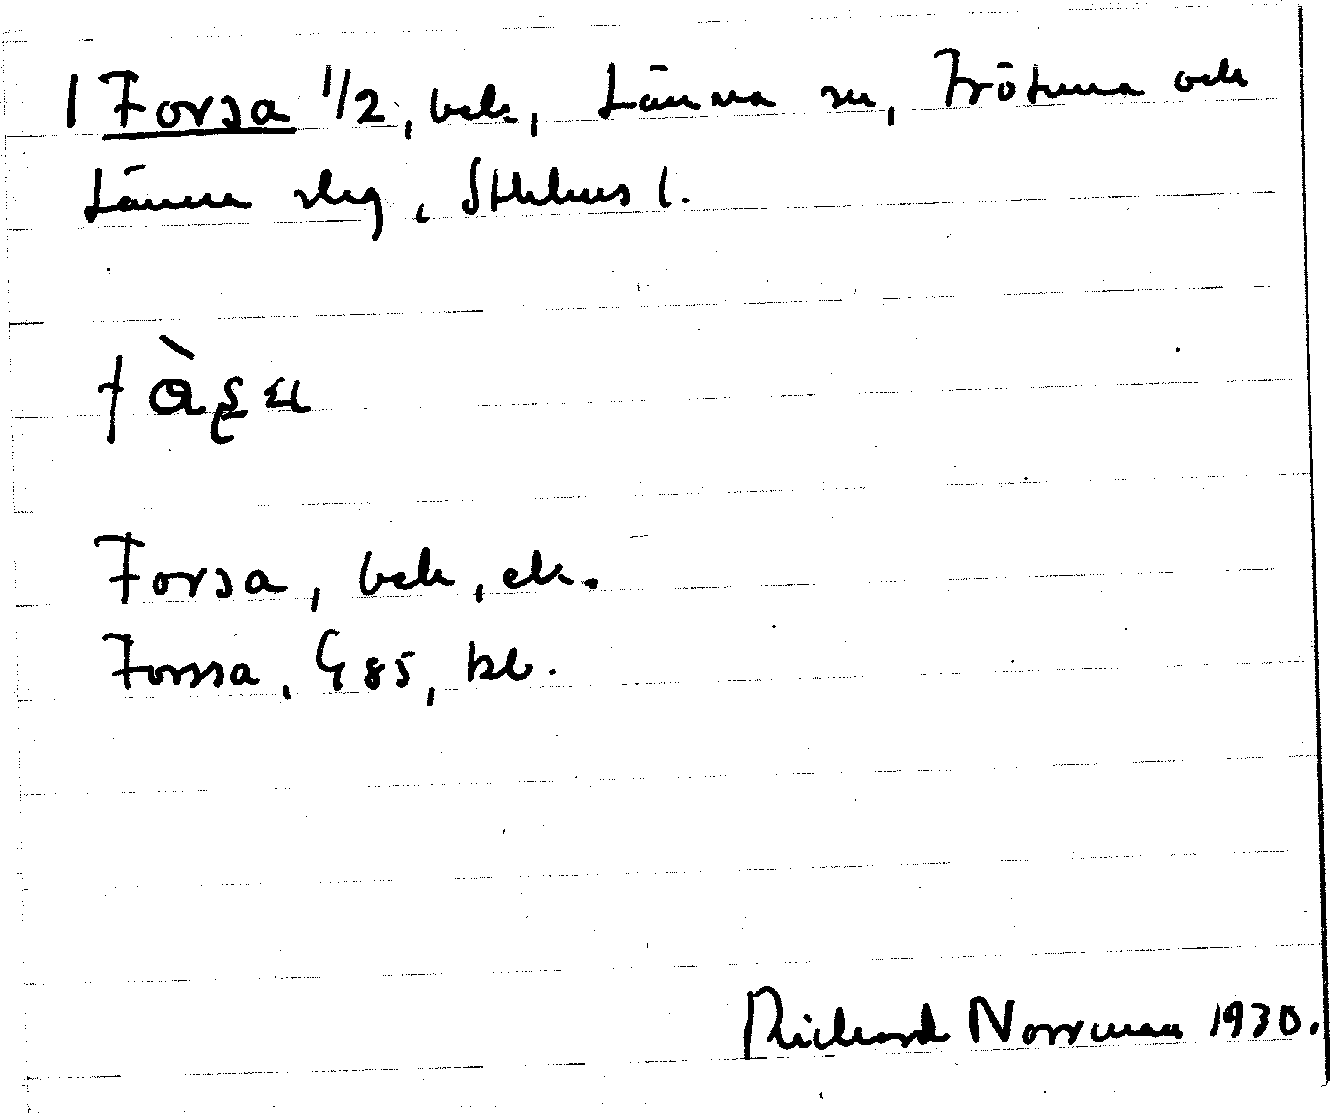 1 Forsa 1/2, beb., Länna sn, Frötuna och
Länna slg, Sthlms l.
Forsa, beb, ek.
Forssa, G 85, bl.
Richard Norrman 1930.